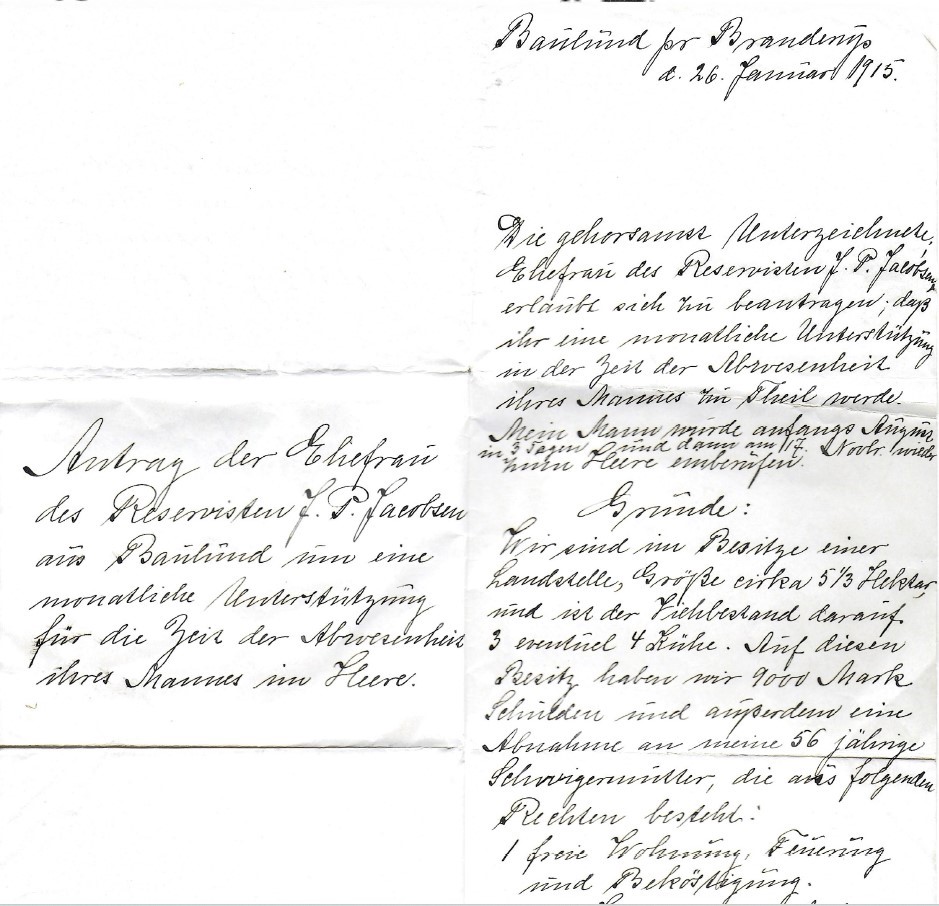 Antrag der Ehefrau
des Reservisten J. P. Jacobsen
aus Baulund um eine
monatliche Unterstützung
für die Zeit der Abwesenheit
ihres Mannes im Heere.
Baulund pr Branderup
d. 26. Januar 1915.
Die gehorsamst Unterzeichnete,
Ehefrau des Reservisten J. P. Jacobsen,
erlaubt sich zu beantragen, daß
ihr eine monatliche Unterstützung
in der Zeit der Abwesenheit
ihres Mannes zu Theil werde.
Mein Mann wurde anfangs August
in 3 Tagen und dann am 17. Novbr. wieder
zum Heere einberufen.
Gründe:
Wir sind im Besitze einer
Landstelle, Größe cirka 5 1/3 Hektar,
und ist der Viehbestand darauf
3 eventuel 4 Kühe. Auf diesen
Besitz haben wir 9000 Mark
Schulden und außerdem eine
Abnahme an meine 56 jährige
Schwigermutter, die aus folgenden
Rechten besteht:
1 freie Wohnung, Feuerung
und Beköstigung.